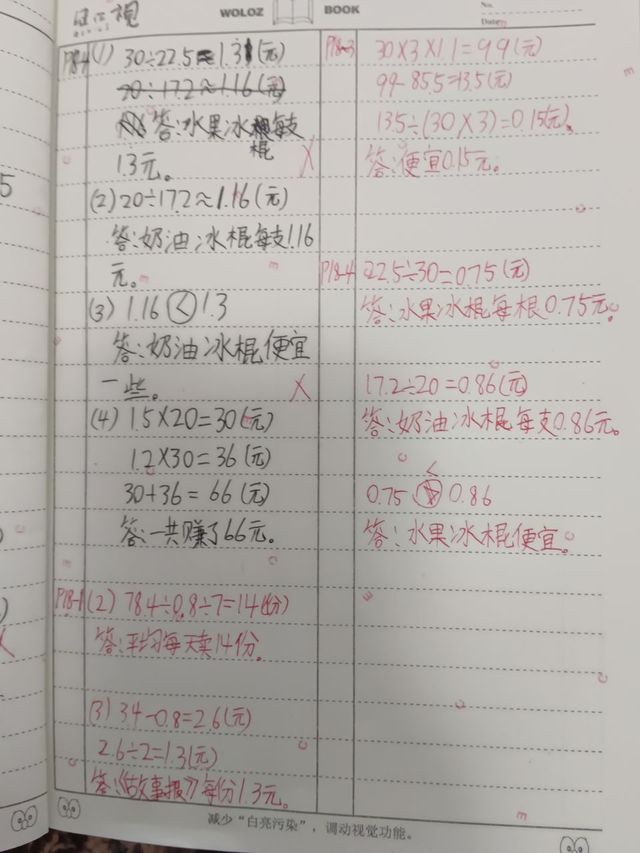 WOLOZ BOOK
No.
Date
P18-4 (1) 30÷22.5≈1.3(元)
20÷17.2≈1.16(元)
答:水果冰棍每支
1.3元。
(2) 20÷17.2≈1.16(元)
答:奶油冰棍每支1.16
元。
(3) 1.16<1.3
答:奶油冰棍便宜
一些。
(4) 1.5×20=30(元)
1.2×30=36(元)
30+36=66(元)
答:一共赚了66元。
P18-1 (2) 78.4÷0.8÷7=14(份)
答:平均每天卖14份。
(3) 3.4-0.8=2.6(元)
2.6÷2=1.3(元)
答:《故事报》每份1.3元。
P18-3 30×3×1.1=99(元)
99-85.5=13.5(元)
13.5÷(30×3)=0.15(元)。
答:便宜0.15元。
P18-4 22.5÷30=0.75(元)
答:水果冰棍每根0.75元。
17.2÷20=0.86(元)
答:奶油冰棍每支0.86元。
0.75<0.86
答:水果冰棍便宜。
减少“白亮污染”,调动视觉功能。